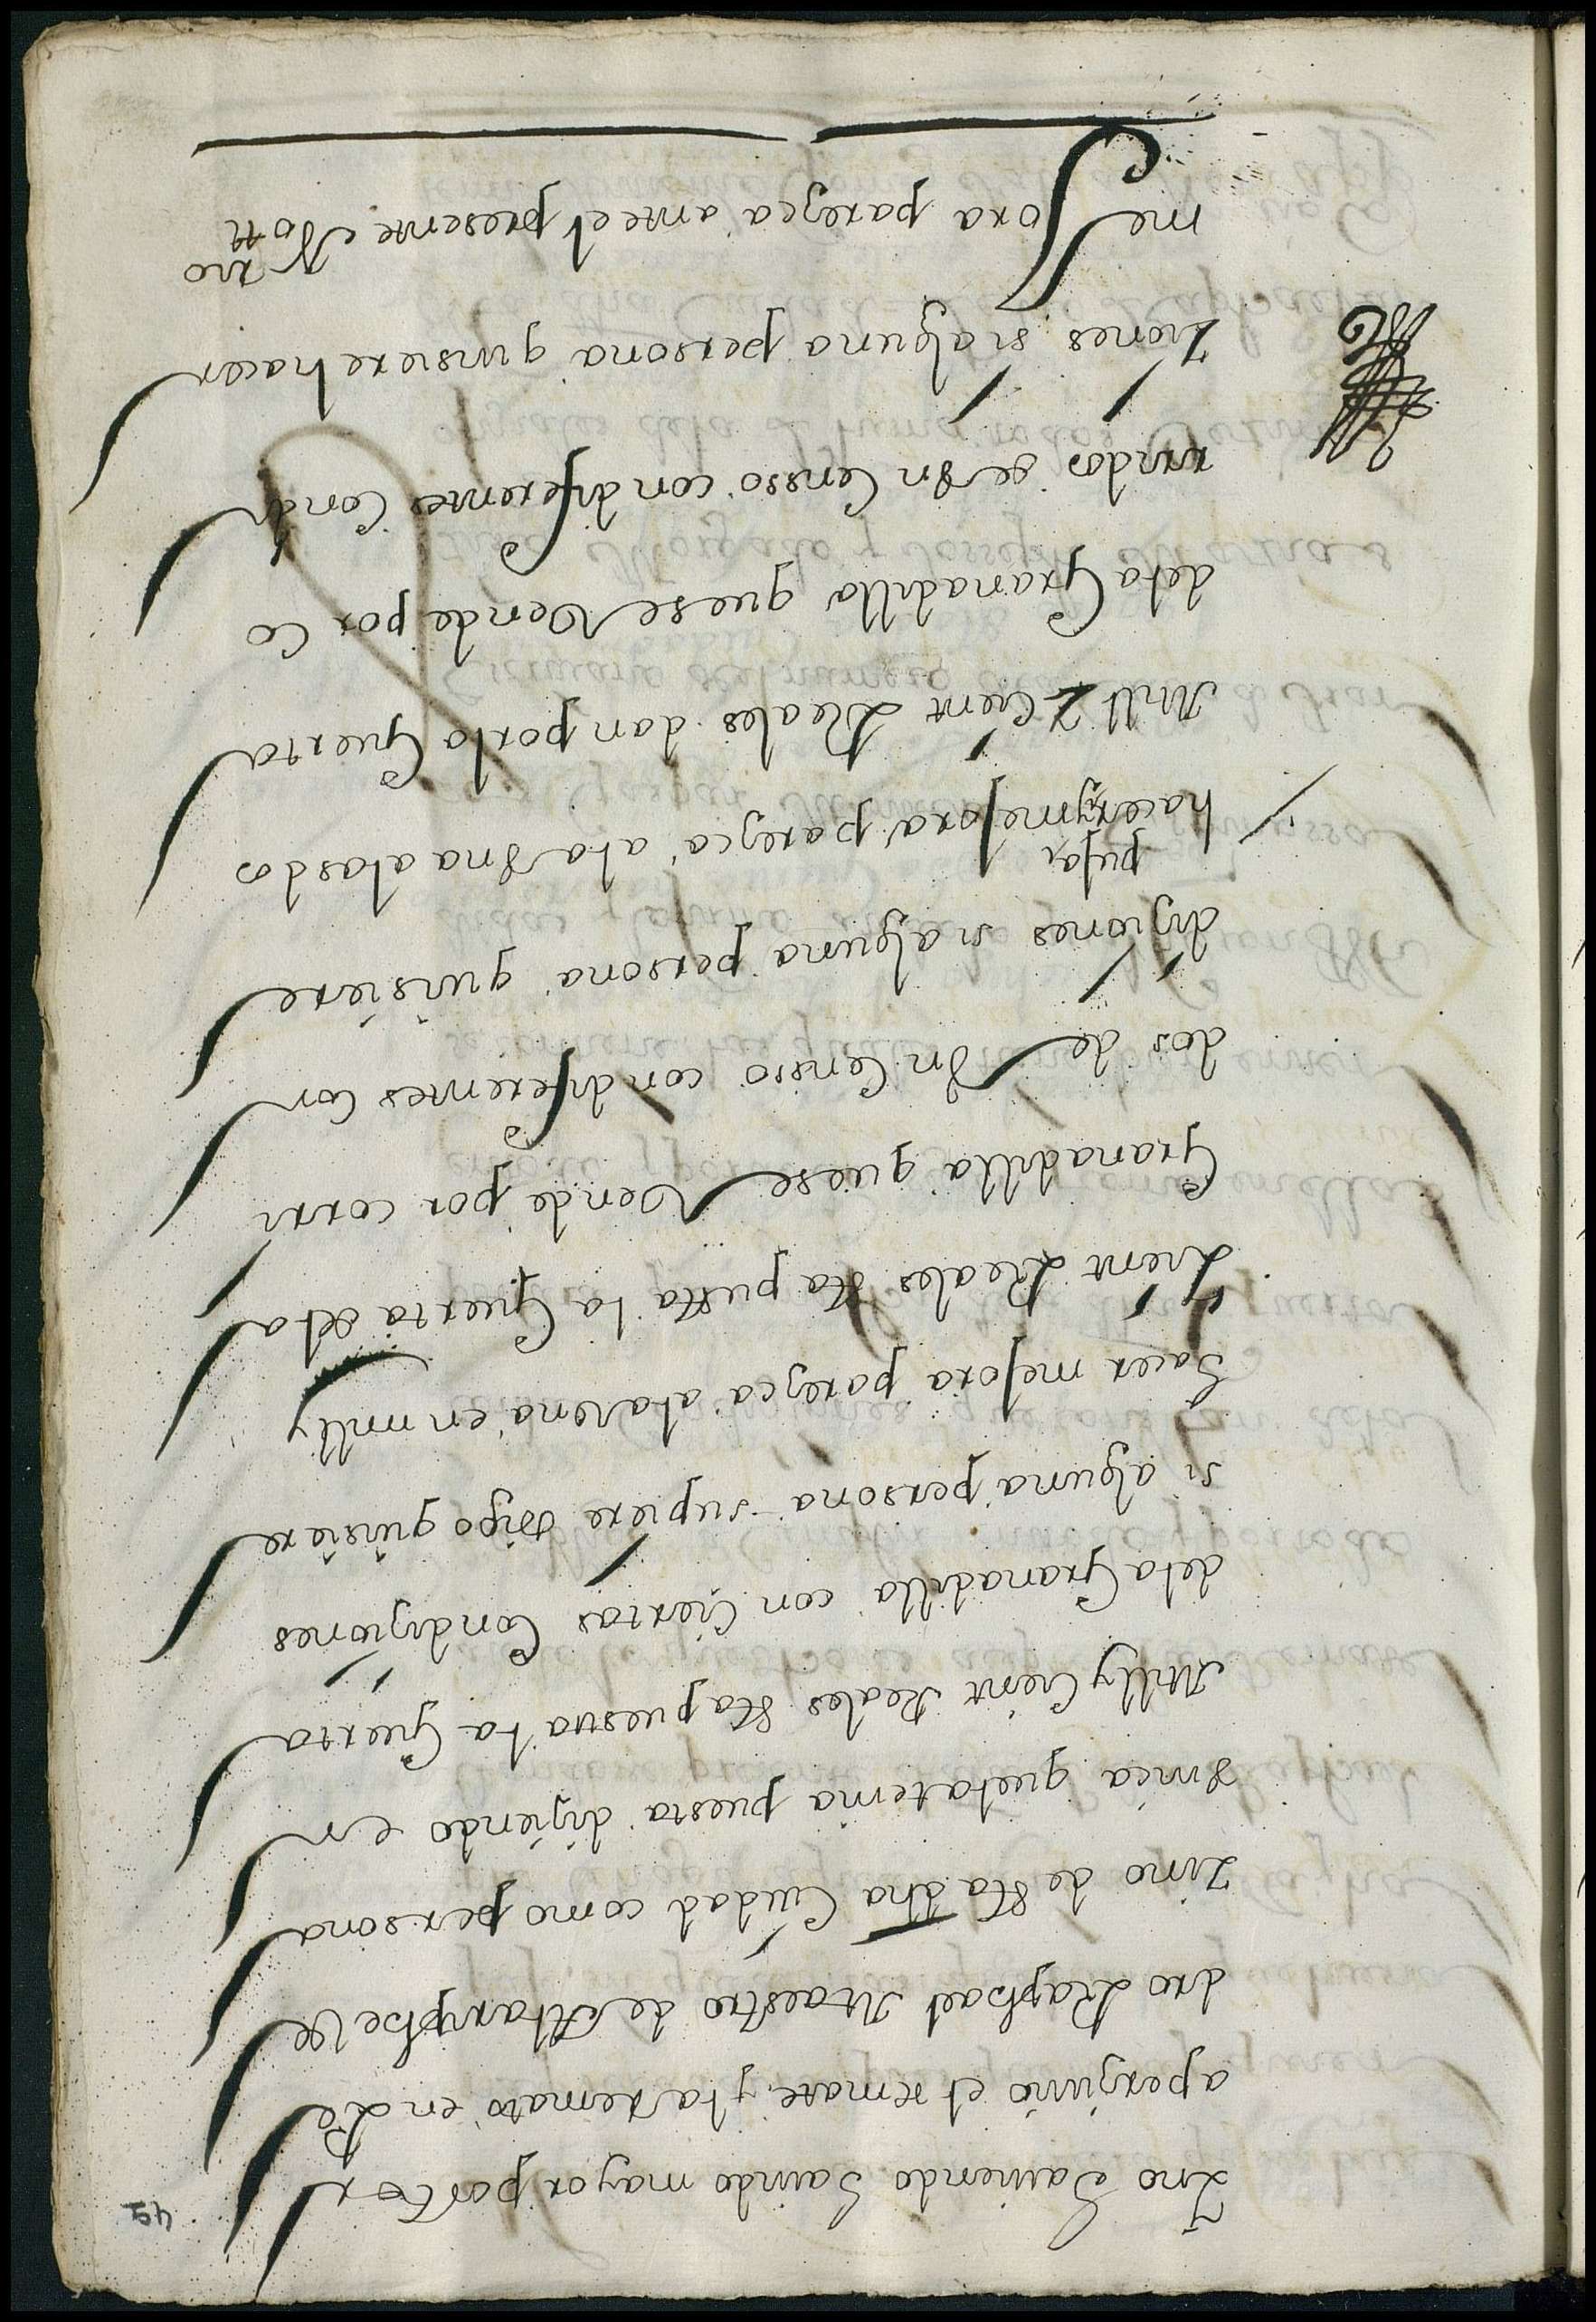 49
Y no Saviendo Savido mayor postor
aperzivio el remate, y la remato en Pe
dro Raphael Maestro de Alaryphe Ve
zino de sta dha Ciudad como persona
Vnica que la tenia puesta diziendo en
Mill y Cient Reales sta puesta la Guerta
de la Granadilla con Ciertas Condiziones
si alguna persona supiere digo quisiere
Sacer mejora parezca a la vna en mill y
Zient Reales sta pusta la Guerta de la
Granadilla que se Vende por corri
dos de Vn Censo con diferentes Con
diziones si alguna persona quisiere
puja
hacer y mejora parezca a la Vna a las dos
Mill Y Cient Reales dan por la Guerta
de la Granadilla que se Vende por Co
rridos de Vn Censo con diferentes Condi
ziones si alguna persona quisiere hacer
mejora parezca ante el presente Nott
rio